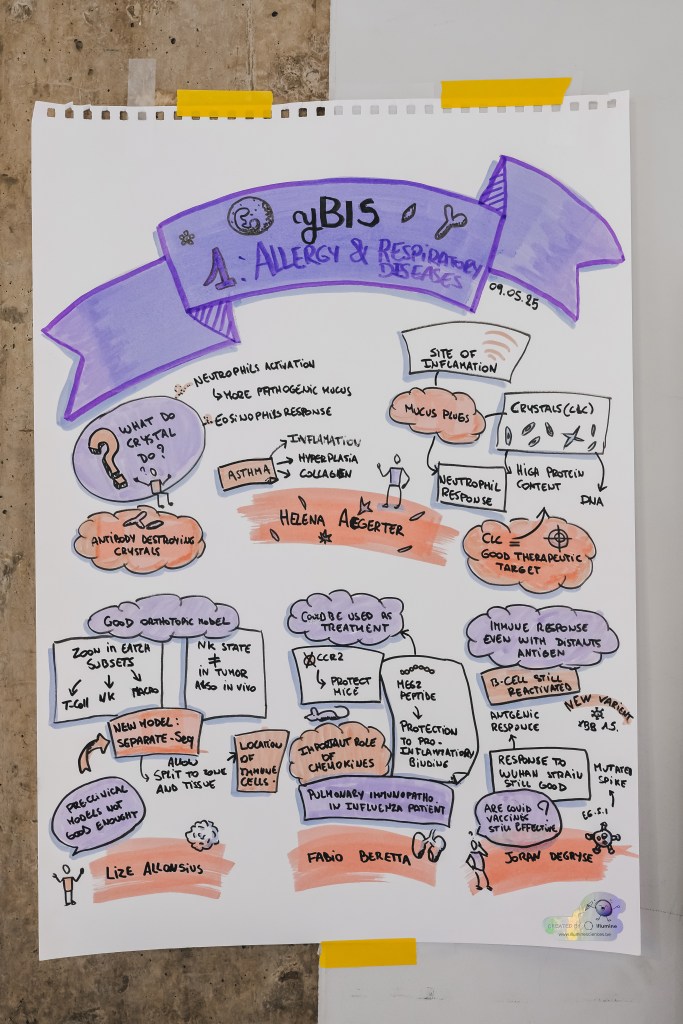 yBIS
1: ALLERGY & RESPIRATORY
DISEASES
09.05.25
NEUTROPHILS ACTIVATION
↳ MORE PATHOGENIC MUCUS
EOSINOPHILS RESPONSE
WHAT DO
CRYSTAL
DO?
?
ANTIBODY DESTROYING
CRYSTALS
ASTHMA
INFLAMATION
HYPERPLATIA
COLLAGEN
HELENA AEGERTER
SITE OF
INFLAMATION
MUCUS PLUGS
CRYSTALS (CLC)
NEUTROPHIL
RESPONSE
HIGH PROTEIN
CONTENT
DNA
CLC =
GOOD THERAPEUTIC
TARGET
GOOD ORTHOTOPIC MODEL
ZOON IN EATCH
SUBSETS
T-Cell NK MACRO
NK STATE
≠
IN TUMOR
ALSO IN VIVO
NEW MODEL:
SEPARATE-SEQ
ALLOW
SPLIT TO ZONE
AND TISSUE
LOCATION
OF
IMMUNE
CELLS.
PRECLINICAL
MODELS NOT
GOOD ENOUGHT
LIZE ALLONSIUS
COULD BE USED AS
TREATMENT
CCR2
↳ PROTECT
MICE
PEPTIDE
PROTECTION
TO PRO-
INFLAMATIORY
BINDING
IMPORTANT ROLE
OF
CHEMOKINES
PULMONARY IMMUNOPATHO.
IN INFLUENZA PATIENT
FABIO BERETTA
IMMUNE RESPONSE
EVEN WITH DISTANTS
ANTIGEN
B-CELL STILL
REACTIVATED
ANTGENIC
RESPONCE
NEW VARIENT
RESPONSE TO
WUHAN STRAIN
STILL GOOD
MUTATED
SPIKE
EG.5.1
ARE COVID
VACCINES
STILL EFFECTIVE
?
JORAN DEGRYSE
CREATED BY illumine